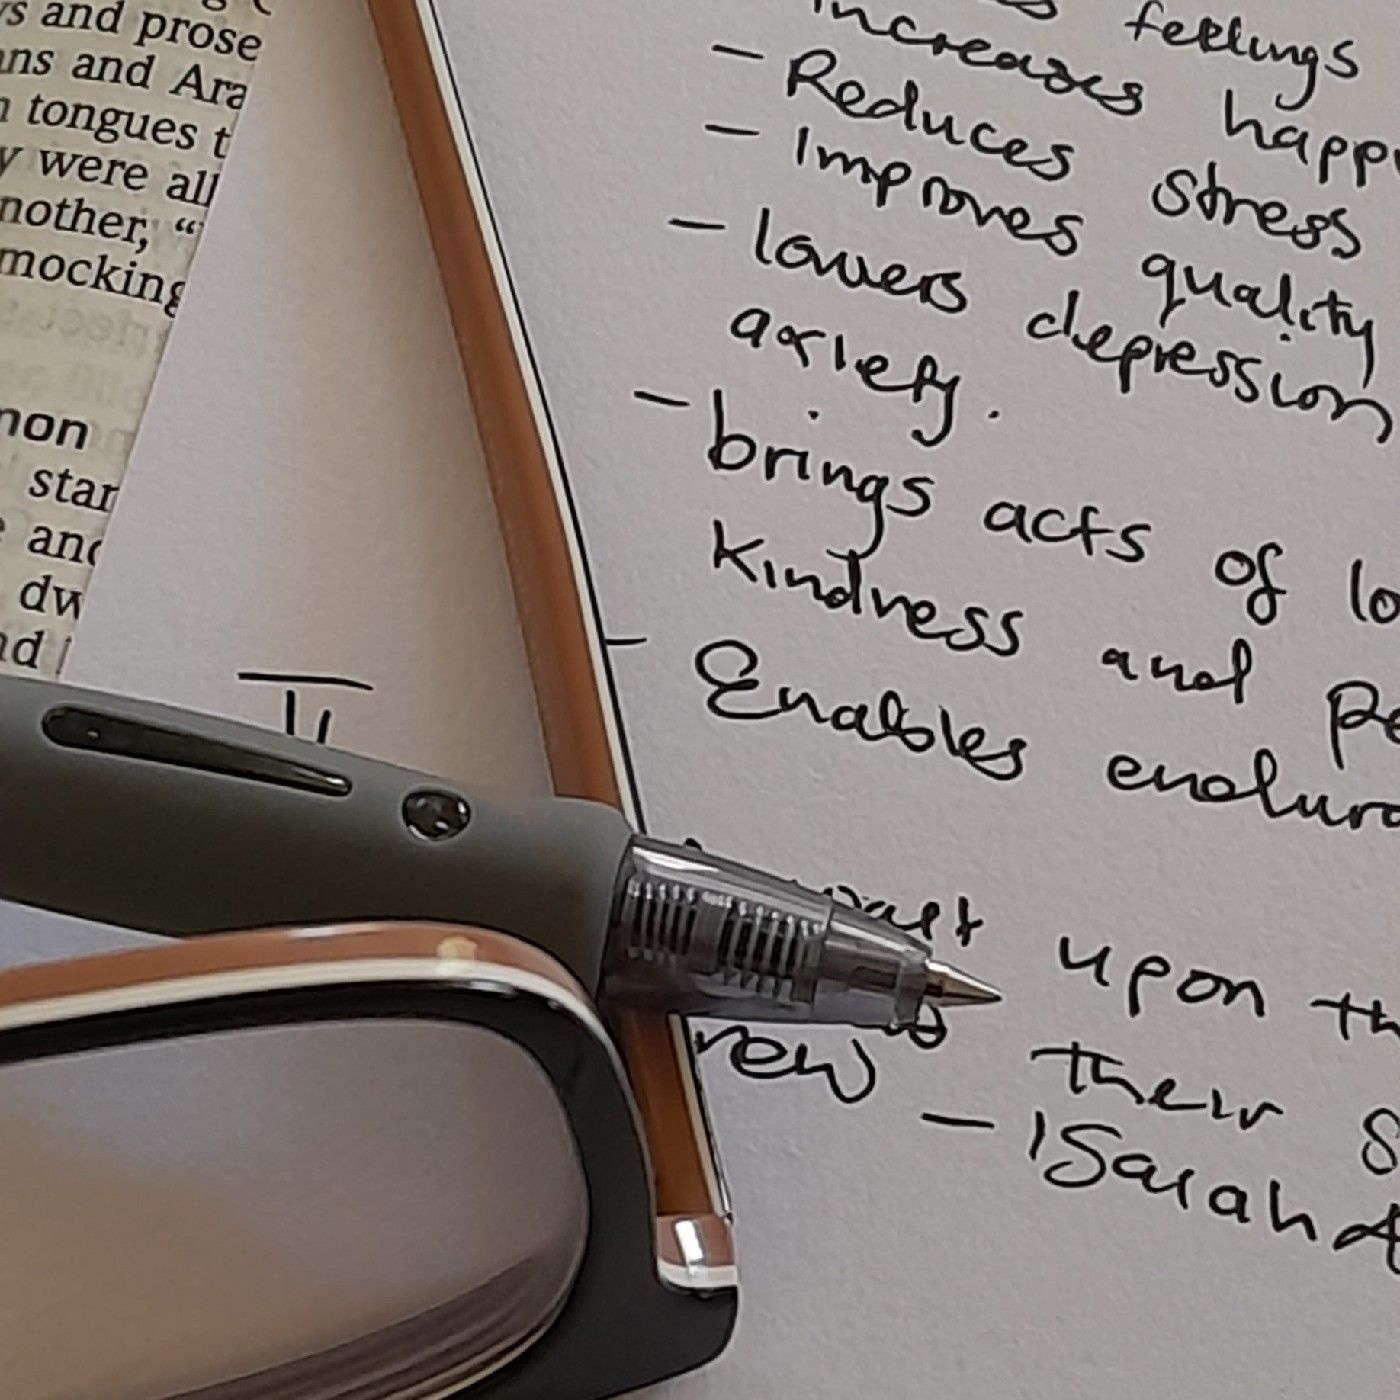 and prose
and Ara
tongues t
were all
nother, “
mocking
non
star
and
dw
nd
feelings
increases happ
- Reduces stress
- Improves quality
- lowers depression
axiety.
- brings acts of lo
kindness and pe
- Enables endura
upon th
rew their S
- ISarah 4